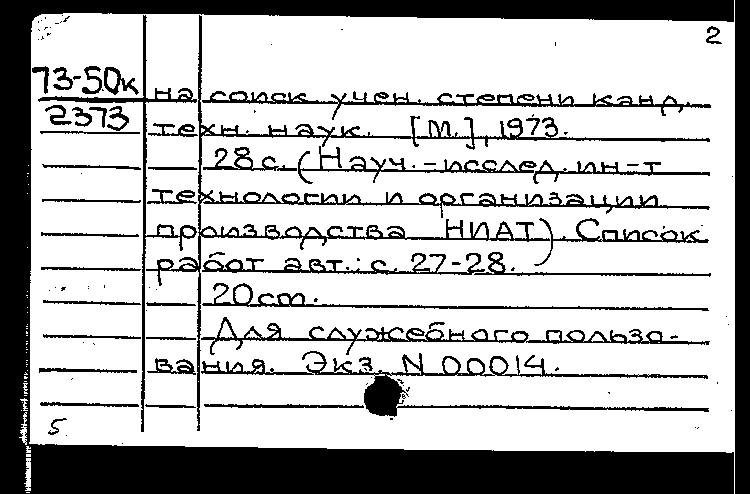 2
73-50к
2373
на соиск. учен. степени канд.
техн. наук. [М.], 1973.
28с. (Науч.-исслед. ин-т
технологии и организации
производства НИАТ). Список
работ авт.: с. 27-28.
20см.
Для служебного пользо-
вания. Экз. N 00014.
5